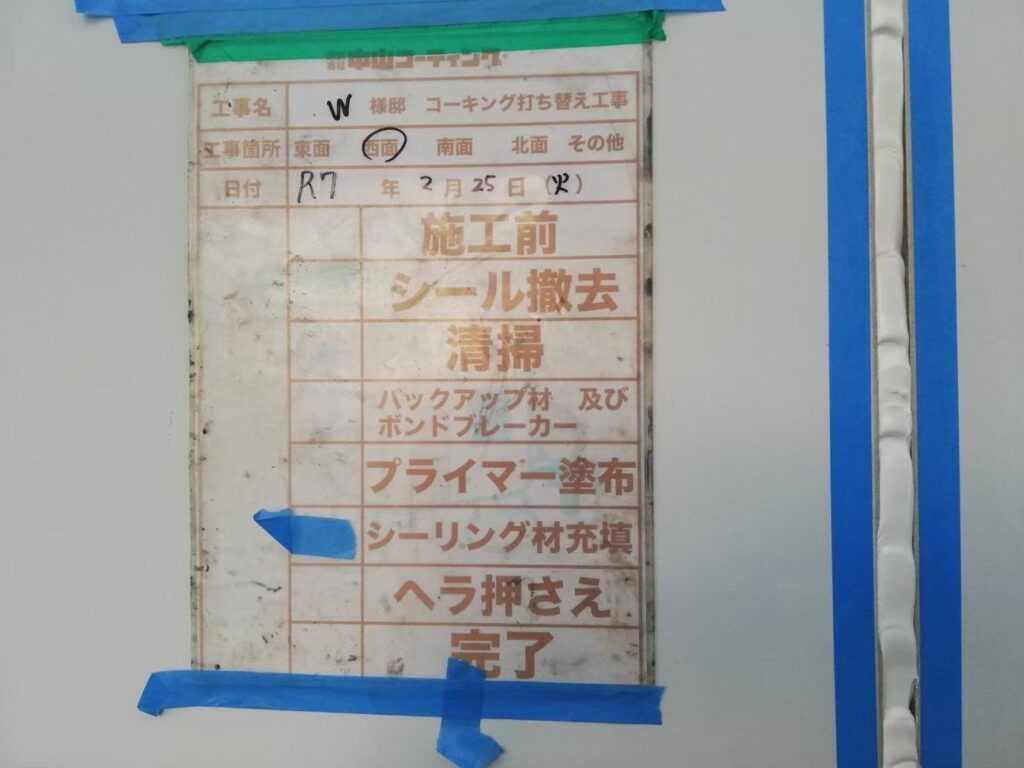 株式会社中山コーティング
工事名 W 様邸 コーキング打ち替え工事
工事箇所 東面 西面 南面 北面 その他
日付 R7 年 2 月 25 日 (火)
施工前
シール撤去
清掃
バックアップ材 及び
ボンドブレーカー
プライマー塗布
シーリング材充填
ヘラ押さえ
完了